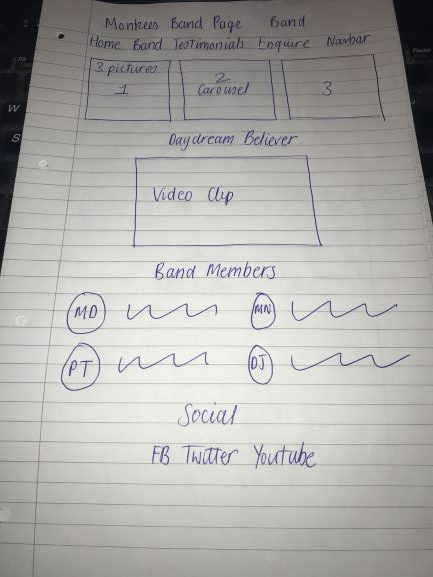 Monkees Band Page Band
Home Band Testimonials Enquire Navbar
3 pictures
1
2
Carousel
3
Daydream Believer
Video Clip
Band Members
MD
MN
PT
DJ
Social
FB Twitter Youtube
W
S
Pause